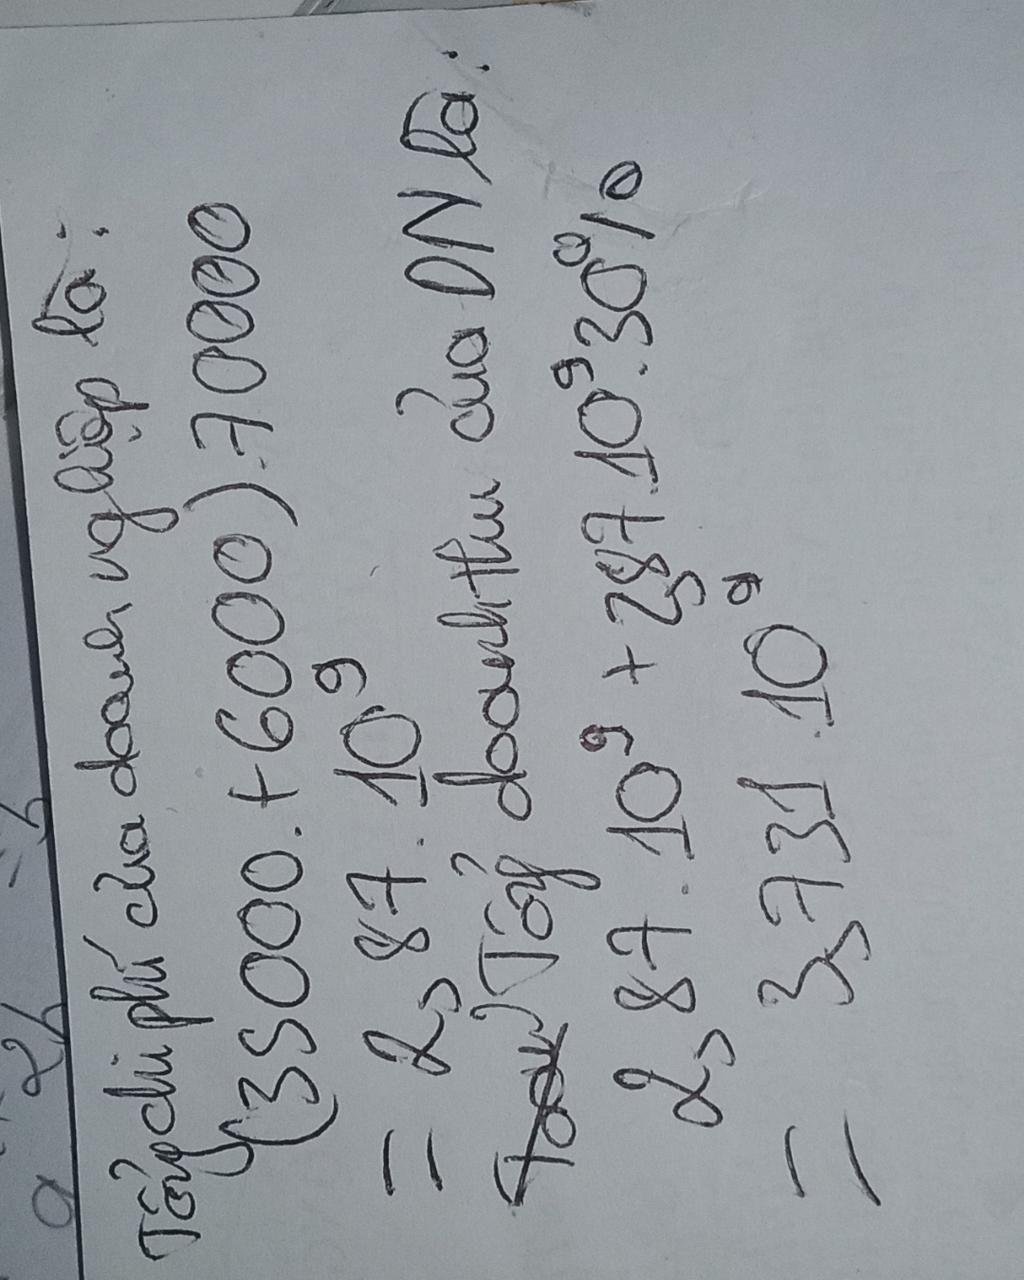 Tổng chi phí của doanh nghiệp là:
(35000.+6000).70000
= 2,87.10⁹
Tổng doanh thu của DN là:
2,87.10⁹ + 2,87.10⁹.30%
= 3,731.10⁹